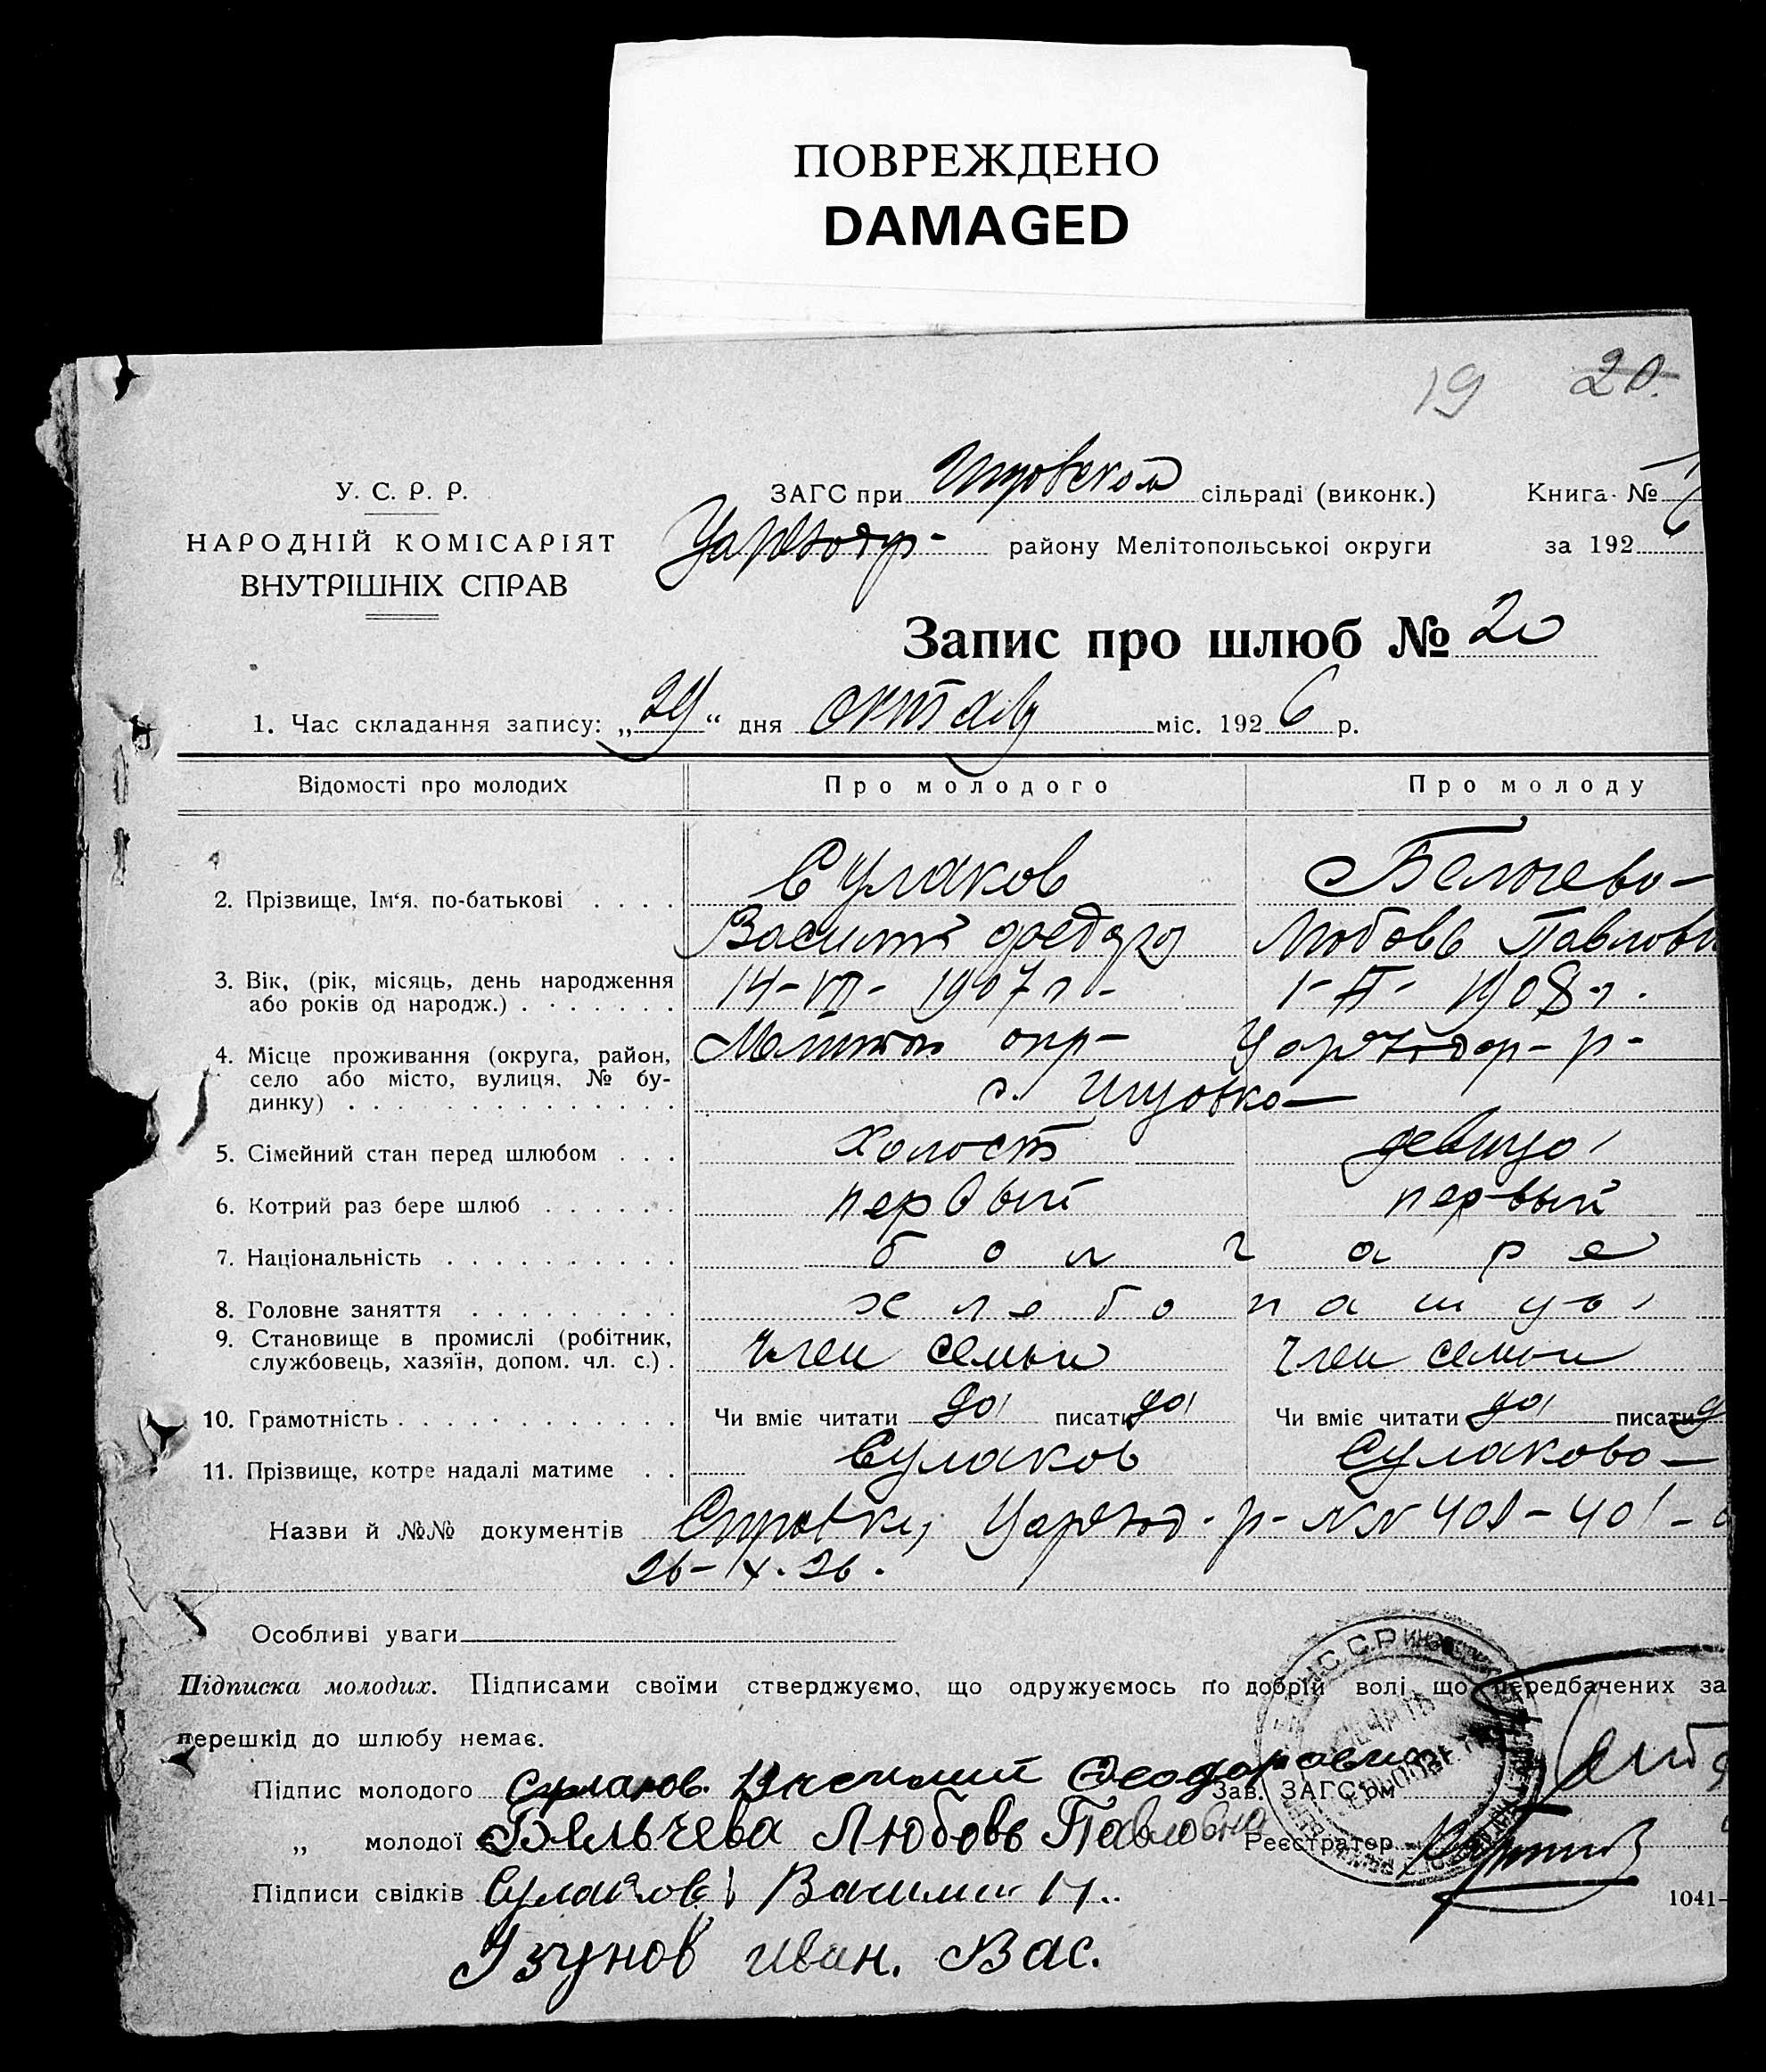 ПОВРЕЖДЕНО
DAMAGED
19 20.
У. С. Р. Р.
НАРОДНІЙ КОМІСАРІЯТ
ВНУТРІШНІХ СПРАВ
ЗАГС при сільраді (виконк.) Книга №
району Мелітопольської округи за 192 6
Запис про шлюб № 20
1. Час складання запису: „29“ дня октяб міс. 192 6 р.
Відомості про молодих Про молодого Про молоду
2. Прізвище, Ім‘я, по-батькові . . . . Сулаков
Василий Федор Любовь Павловн
3. Вік, (рік, місяць, день народження
або років од народж.) . . . . . . . 14-VII- 1907 г- 1-II- 1908 г.
4. Місце проживання (округа, район, Мелитоп окр-
село або місто, вулиця, № бу-
динку) . . . . . . . . . . . . . . с.
5. Сімейний стан перед шлюбом . . . холост девица
6. Котрий раз бере шлюб . . . . . . первый первый
7. Національність . . . . . . . . . . болгаре
8. Головне заняття . . . . . . . . . хлебопашцы
9. Становище в промислі (робітник,
службовець, хазяїн, допом. чл. с.) . член семьи член семьи
10. Грамотність . . . . . . . . . . . . Чи вміє читати да писати да Чи вміє читати да писати д
11. Прізвище, котре надалі матиме . . Сулаков Сулакова
Назви й №№ документів Справки, р- NN 401-
26-X-26.
Особливі уваги
Підписка молодих. Підписами своїми стверджуємо, що одружуємось по добрій волі що передбачених за
перешкід до шлюбу немає.
Підпис молодого Сулаков Василий Феодорович Зав. ЗАГС'ом
„ молодої Бяльчева Любовь Павловна Реєстратор
Підписи свідків Сулаков Василий
1041-
Узунов Иван. Вас.